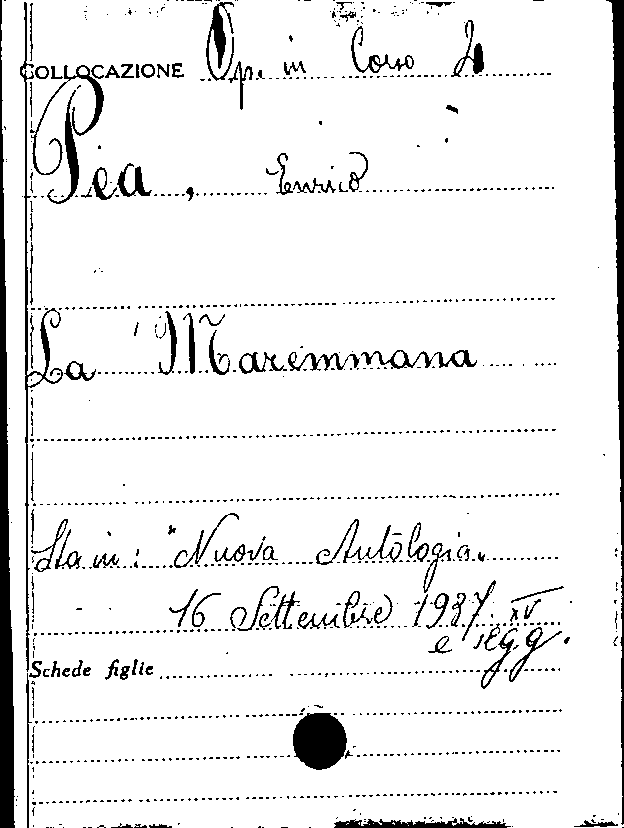 COLLOCAZIONE Op. in Corso 2
Pea, Enrico
La Maremmana
Sta in: "Nuova Antologia"
16 Settembre 1937. XV
e segg.
Schede figlie